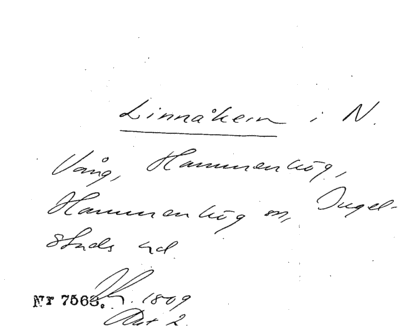 Linnåkern i N.
Vång, Hammenhög,
Hammenhög sn, Ingel-
stads hd.
Nr 7563. 1809
Akt 2